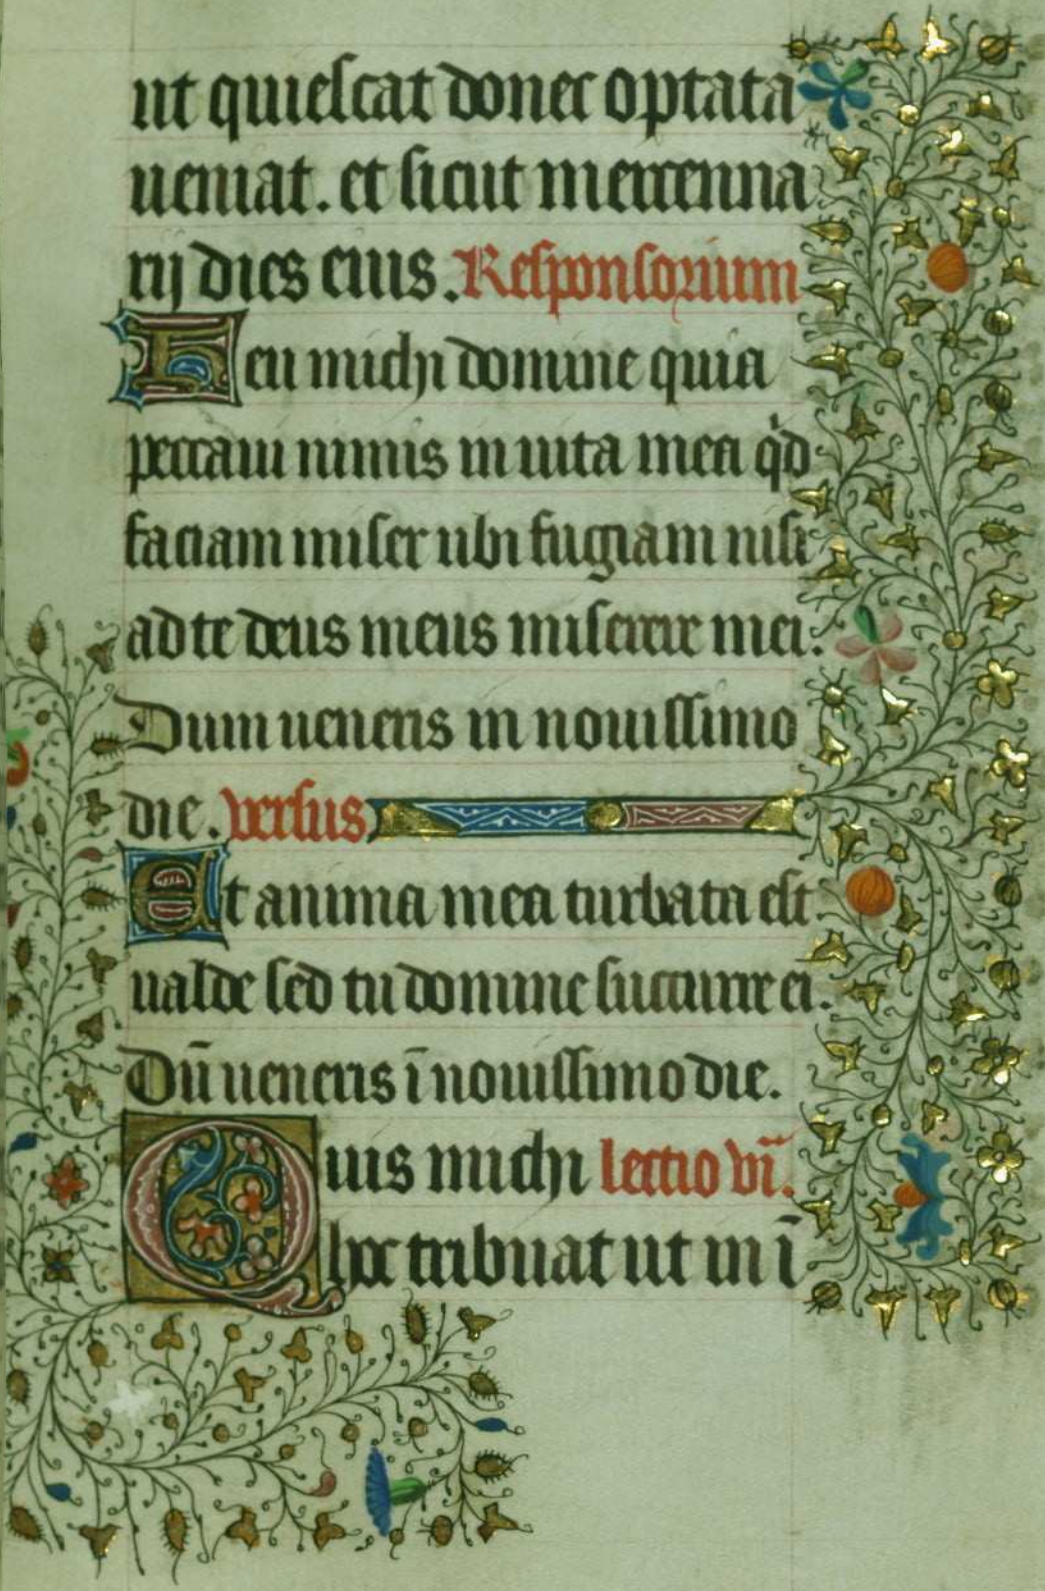 ut quiescat donec optata
ueniat. et sicut mercenna
rij dies eius. Responsorium
Heu michi domine quia
peccaui nimis in uita mea q̇d
faciam miser ubi fugiam nisi
ad te deus meus miserere mei.
Dum ueneris in nouissimo
die. versus
Et anima mea turbata est
ualde sed tu domine succurre ei.
Dū ueneris ī nouissimo die.
Quis michi lectio vī.
hoc tribuat ut in ī